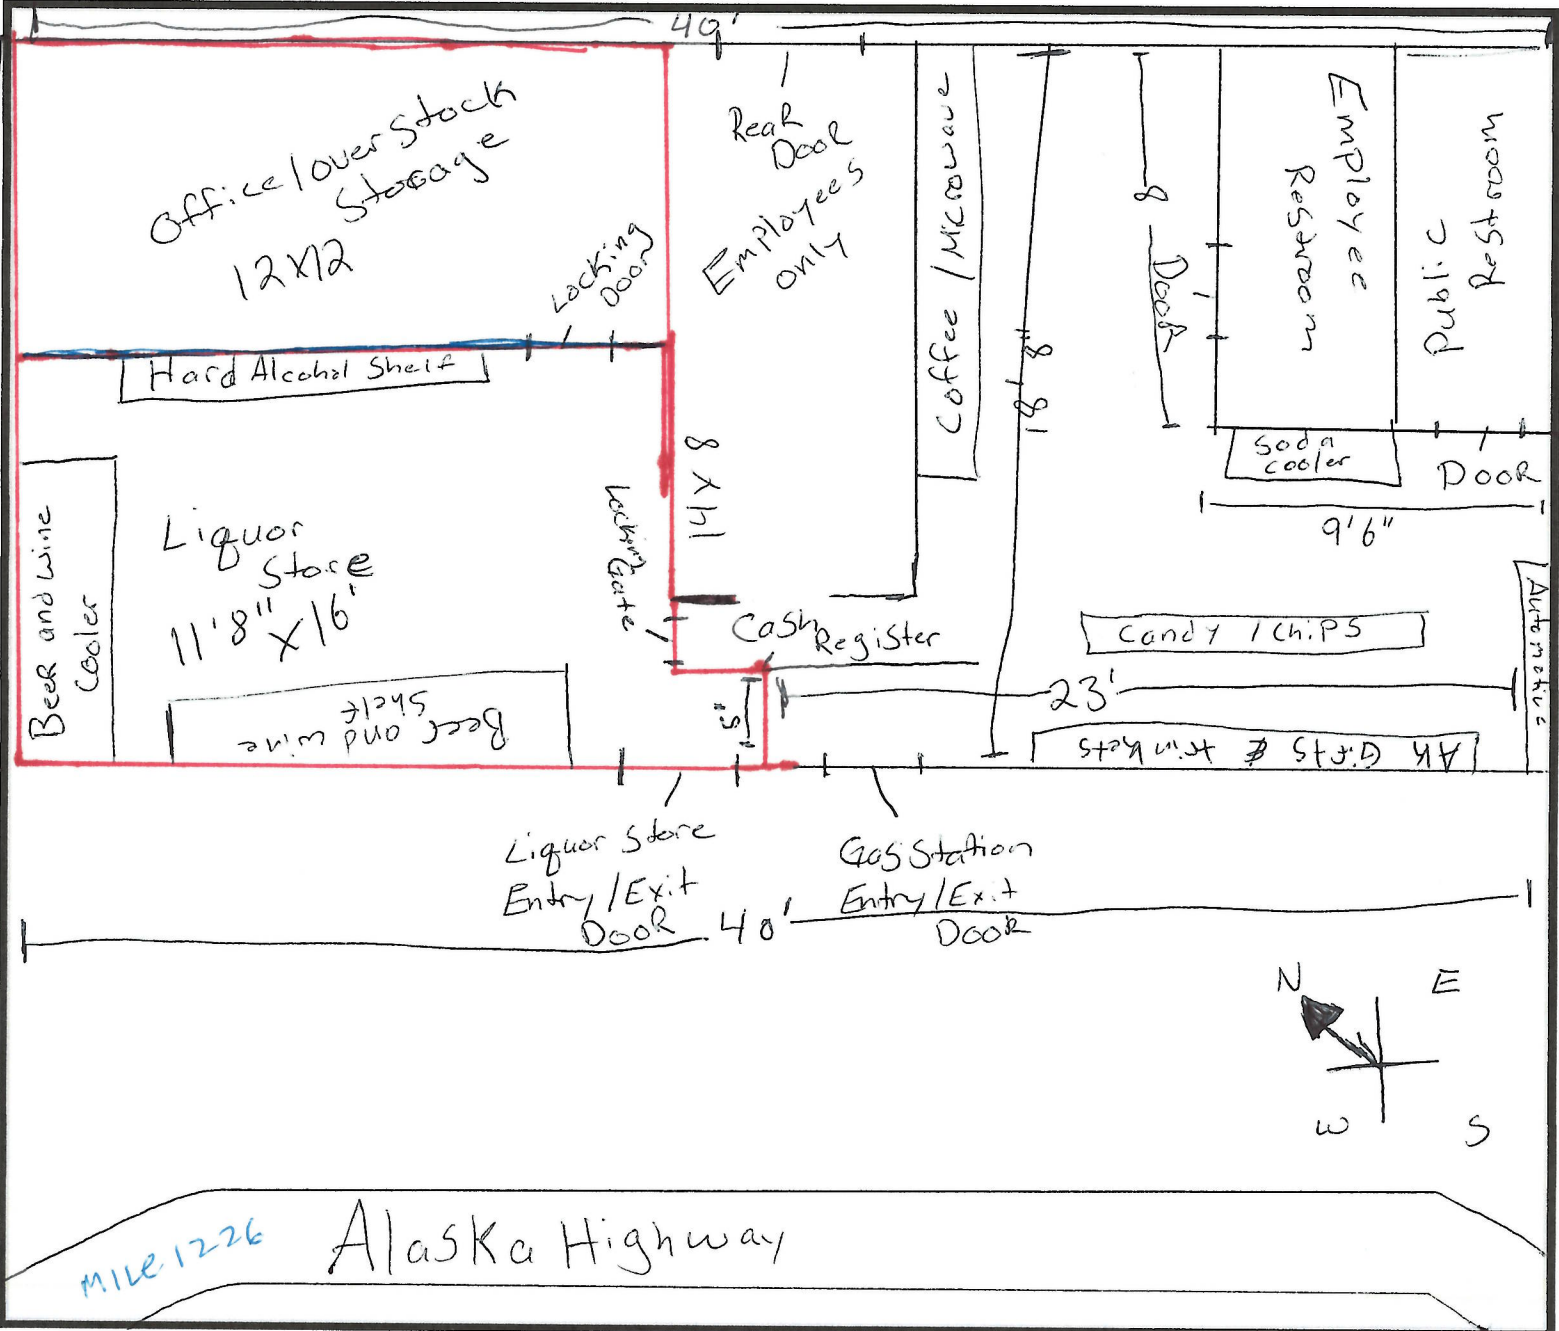 40'
Office/overstock
Storage
12x12
Locking
Door
Rear
Door
Employees
only
Coffee / Microwave
8
Door
Employee
Restroom
Public
Restroom
Hard Alcohol Shelf
8 x 14
18'8"
Soda
cooler
Door
9'6"
Beer and wine
Cooler
Liquor
Store
11'8" x 16'
Locking
Gate
Cash
Register
Candy / Chips
Automotive
Beer and wine
Shelf
5'
23'
AK Gifts & trinkets
Liquor Store
Entry/Exit
Door
Gas Station
Entry/Exit
Door
40'
N
E
W
S
Mile 1226
Alaska Highway